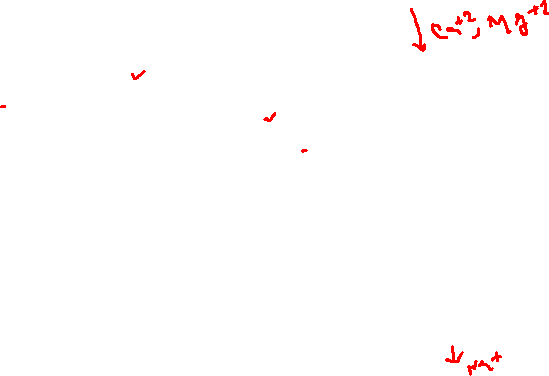 ↓ Ca+2, Mg+2
↓ Na+